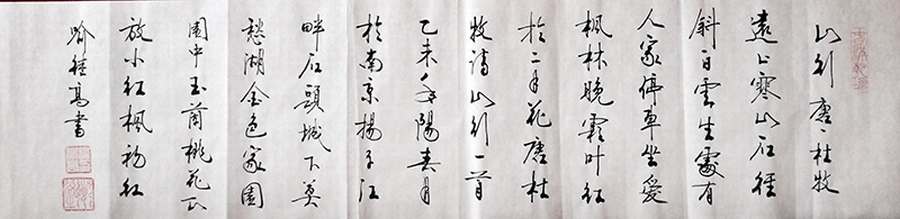 山行 唐 杜牧
遠上寒山石径
斜白雲生處有
人家停車坐愛
枫林晚霜叶红
於二月花唐杜
牧诗山行一首
乙未年陽春月
於南京揚子江
畔石頭城下莫
愁湖金色家園
園中玉蘭桃花正
放小红枫初红
喻继高書